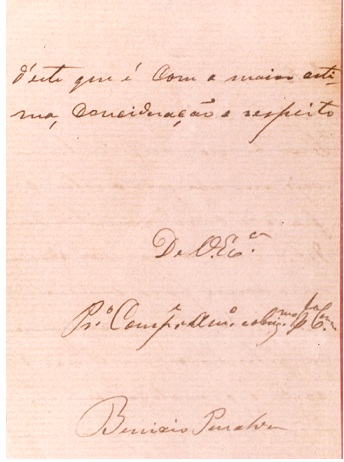 d'este que é com a maior esti-
ma, concideração e respeito
De V. Ex.cia
Pr.o Comp.e Am.o e obrig.mo
Benicio Penalva